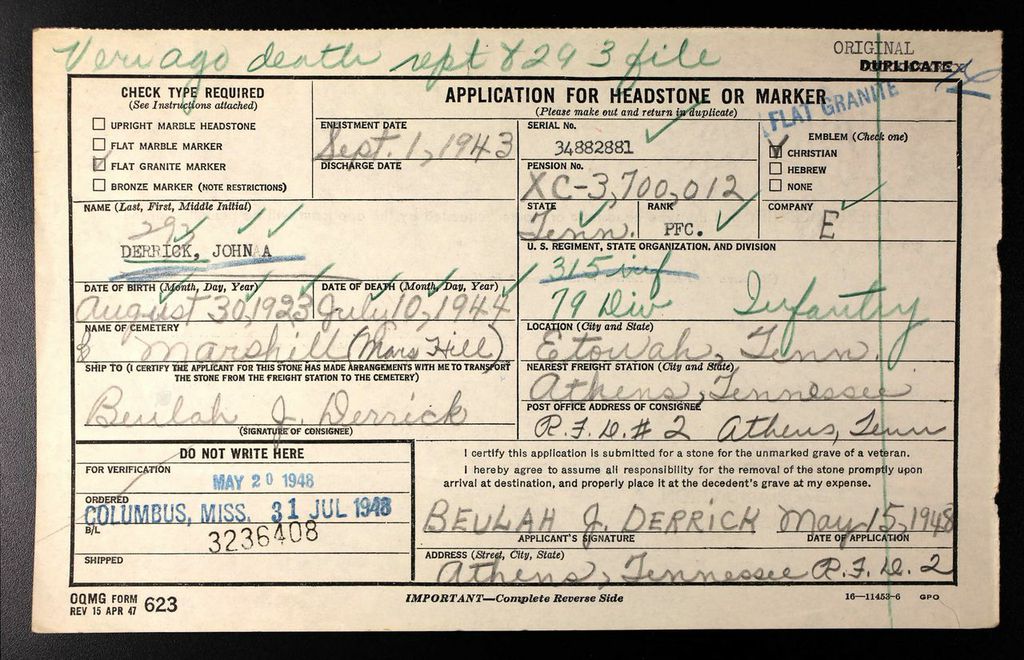 Veri ago death rept 8293 file
ORIGINAL
DUPLICATE
CHECK TYPE REQUIRED
(See Instructions attached)
UPRIGHT MARBLE HEADSTONE
FLAT MARBLE MARKER
FLAT GRANITE MARKER
BRONZE MARKER (NOTE RESTRICTIONS)
APPLICATION FOR HEADSTONE OR MARKER
(Please make out and return in duplicate)
FLAT GRANITE
ENLISTMENT DATE
Sept. 1, 1943
DISCHARGE DATE
SERIAL No.
34882881
PENSION No.
XC-3,700,012
EMBLEM (Check one)
CHRISTIAN
HEBREW
NONE
NAME (Last, First, Middle Initial)
292
DERRICK, JOHN A
STATE
Tenn.
RANK
PFC.
COMPANY
E
U. S. REGIMENT, STATE ORGANIZATION, AND DIVISION
315 inf
79 Div Infantry
DATE OF BIRTH (Month, Day, Year)
August 30, 1923
DATE OF DEATH (Month, Day, Year)
July 10, 1944
NAME OF CEMETERY
Marshill (Mars Hill)
LOCATION (City and State)
Etowah, Tenn.
SHIP TO (I CERTIFY THE APPLICANT FOR THIS STONE HAS MADE ARRANGEMENTS WITH ME TO TRANSPORT
THE STONE FROM THE FREIGHT STATION TO THE CEMETERY)
Beulah J. Derrick
(SIGNATURE OF CONSIGNEE)
NEAREST FREIGHT STATION (City and State)
Athens, Tennessee
POST OFFICE ADDRESS OF CONSIGNEE
R.F.D. # 2 Athens, Tenn
DO NOT WRITE HERE
FOR VERIFICATION
MAY 20 1948
ORDERED
COLUMBUS, MISS. 31 JUL 1948
B/L
3236408
SHIPPED
I certify this application is submitted for a stone for the unmarked grave of a veteran.
I hereby agree to assume all responsibility for the removal of the stone promptly upon
arrival at destination, and properly place it at the decedent's grave at my expense.
BEULAH J. DERRICK May 15, 1948
APPLICANT'S SIGNATURE
DATE OF APPLICATION
ADDRESS (Street, City, State)
Athens, Tennessee R.F.D. 2
OQMG FORM
REV 15 APR 47 623
IMPORTANT—Complete Reverse Side
16—11453-6 GPO